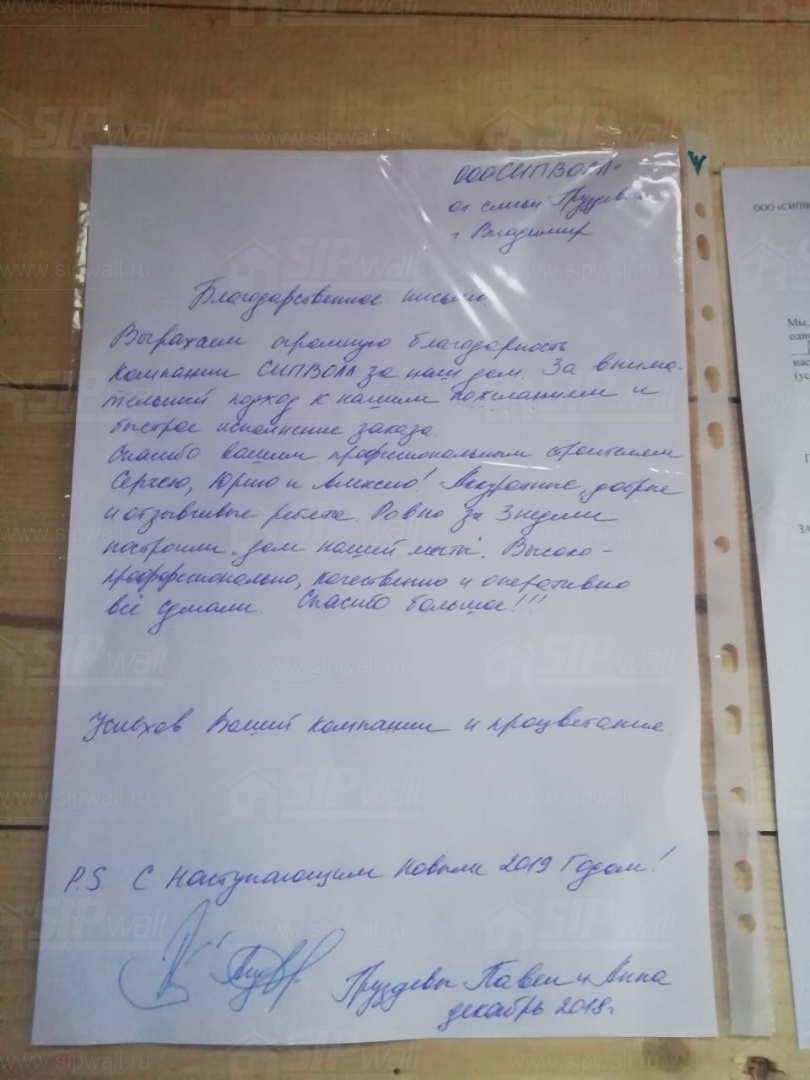 ООО СИПВОЛЛ
от семьи Груздев
г Владимир
Благодарственное письмо.
Выражаем огромную благодарность
компании СИПВОЛЛ за наш дом. За внима-
тельный подход к нашим пожеланиям и
быстрое исполнение заказа.
Спасибо вашим профессиональным строителям
Сергею, Юрию и Алексею! Аккуратные, добрые
и отзывчивые ребята. Ровно за 3 недели
построили "дом нашей мечты". Высоко-
профессионально, качественно и оперативно
всё сделали. Спасибо большое!!!
Успехов Вашей компании и процветания
P.S. С наступающим Новым 2019 Годом!
Груздевы Павел и Анна
декабрь 2018г
ООО «СИПВ
Мы,
одно
нас
(ус
SIPwall
www.sipwall.ru